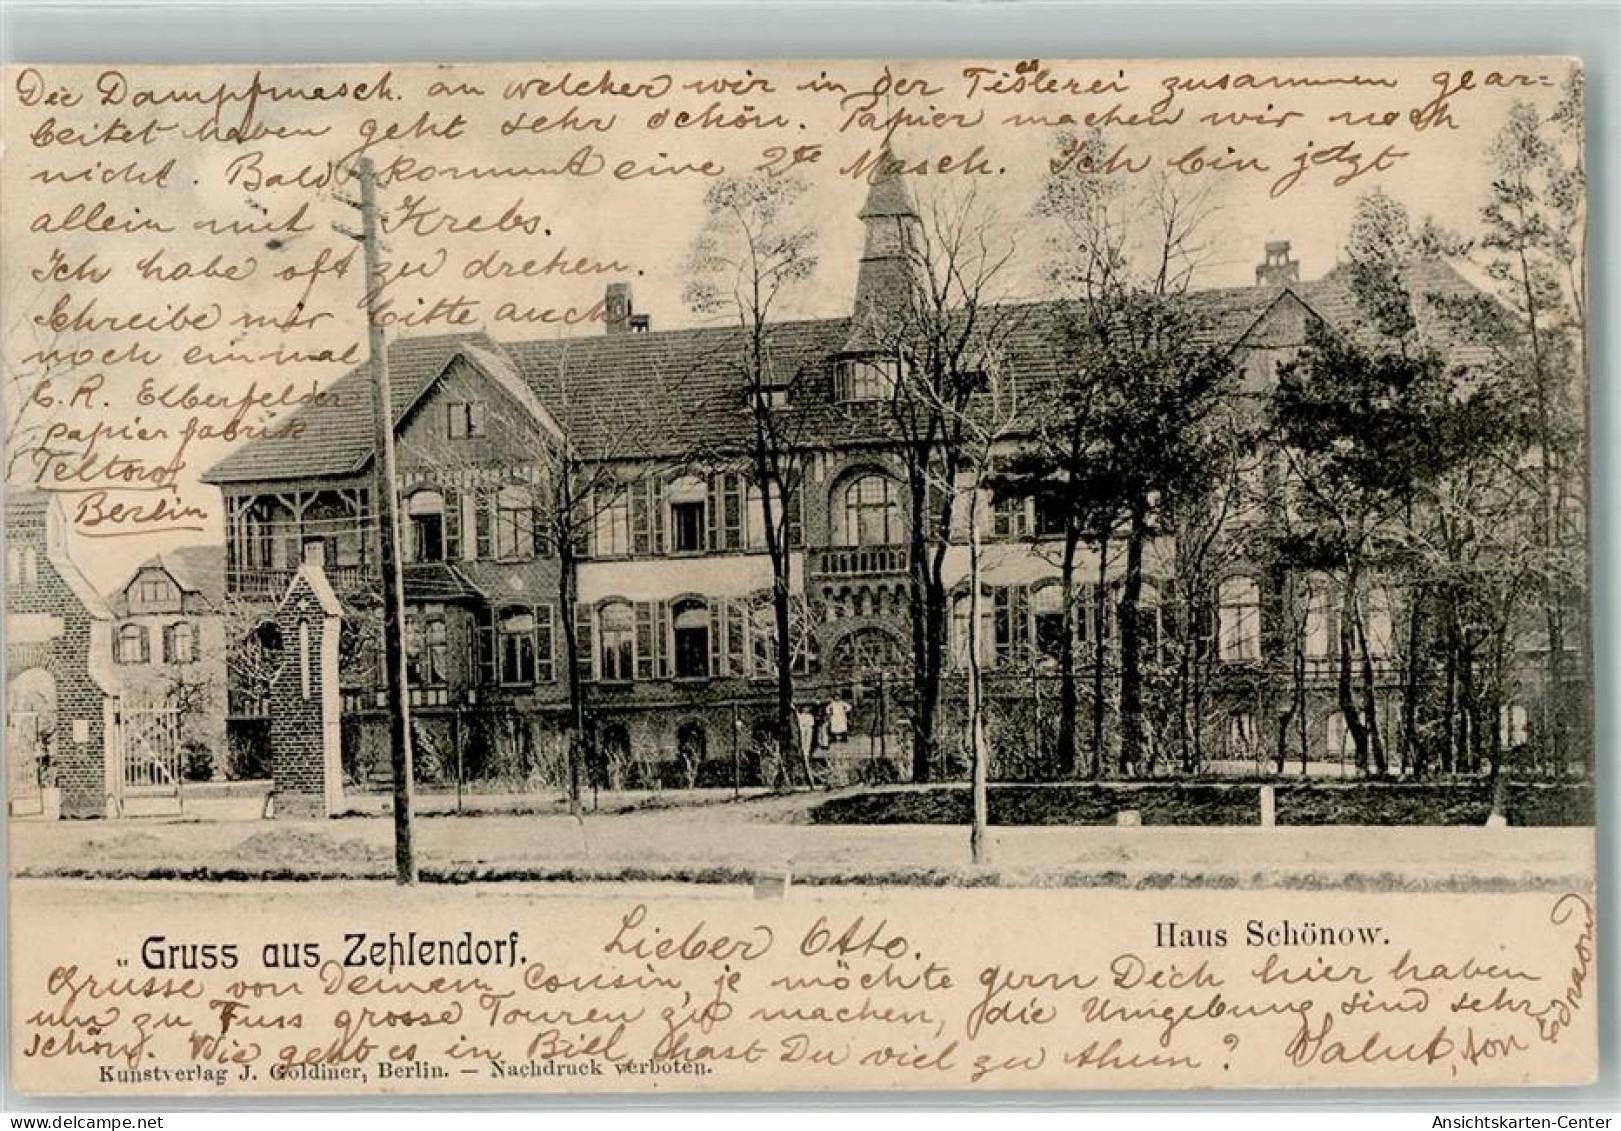 Die Dampfmasch. an welcher wir in der Tislerei zusammen gear=
beitet haben geht sehr schön. Papier machen wir noch
nicht. Bald kommt eine 2te Masch. Ich bin jetzt
allein mit Krebs.
Ich habe oft zu drehen.
Schreibe mir bitte auch
noch einmal
C. R. Elberfelder
papierfabrik
Teltow
Berlin
Gruss aus Zehlendorf.
Lieber Otto.
Haus Schönow.
Grüsse von Deinem Cousin, je möchte gern Dich hier haben
um zu Fuss grosse Touren zu machen, die Umgebung sind sehr
schön. Wie geht es in Biel hast Du viel zu thun? Salut, ton Edmond
Kunstverlag J. Goldiner, Berlin. — Nachdruck verboten.
Ansichtskarten-Center